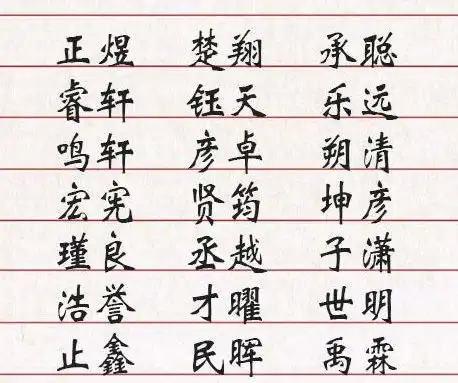 正煜 楚翔 承聪
睿轩 钰天 乐远
鸣轩 彦卓 朔清
宏宪 贤筠 坤彦
瑾良 丞越 子潇
浩誉 才曜 世明
止鑫 民晖 禹霖